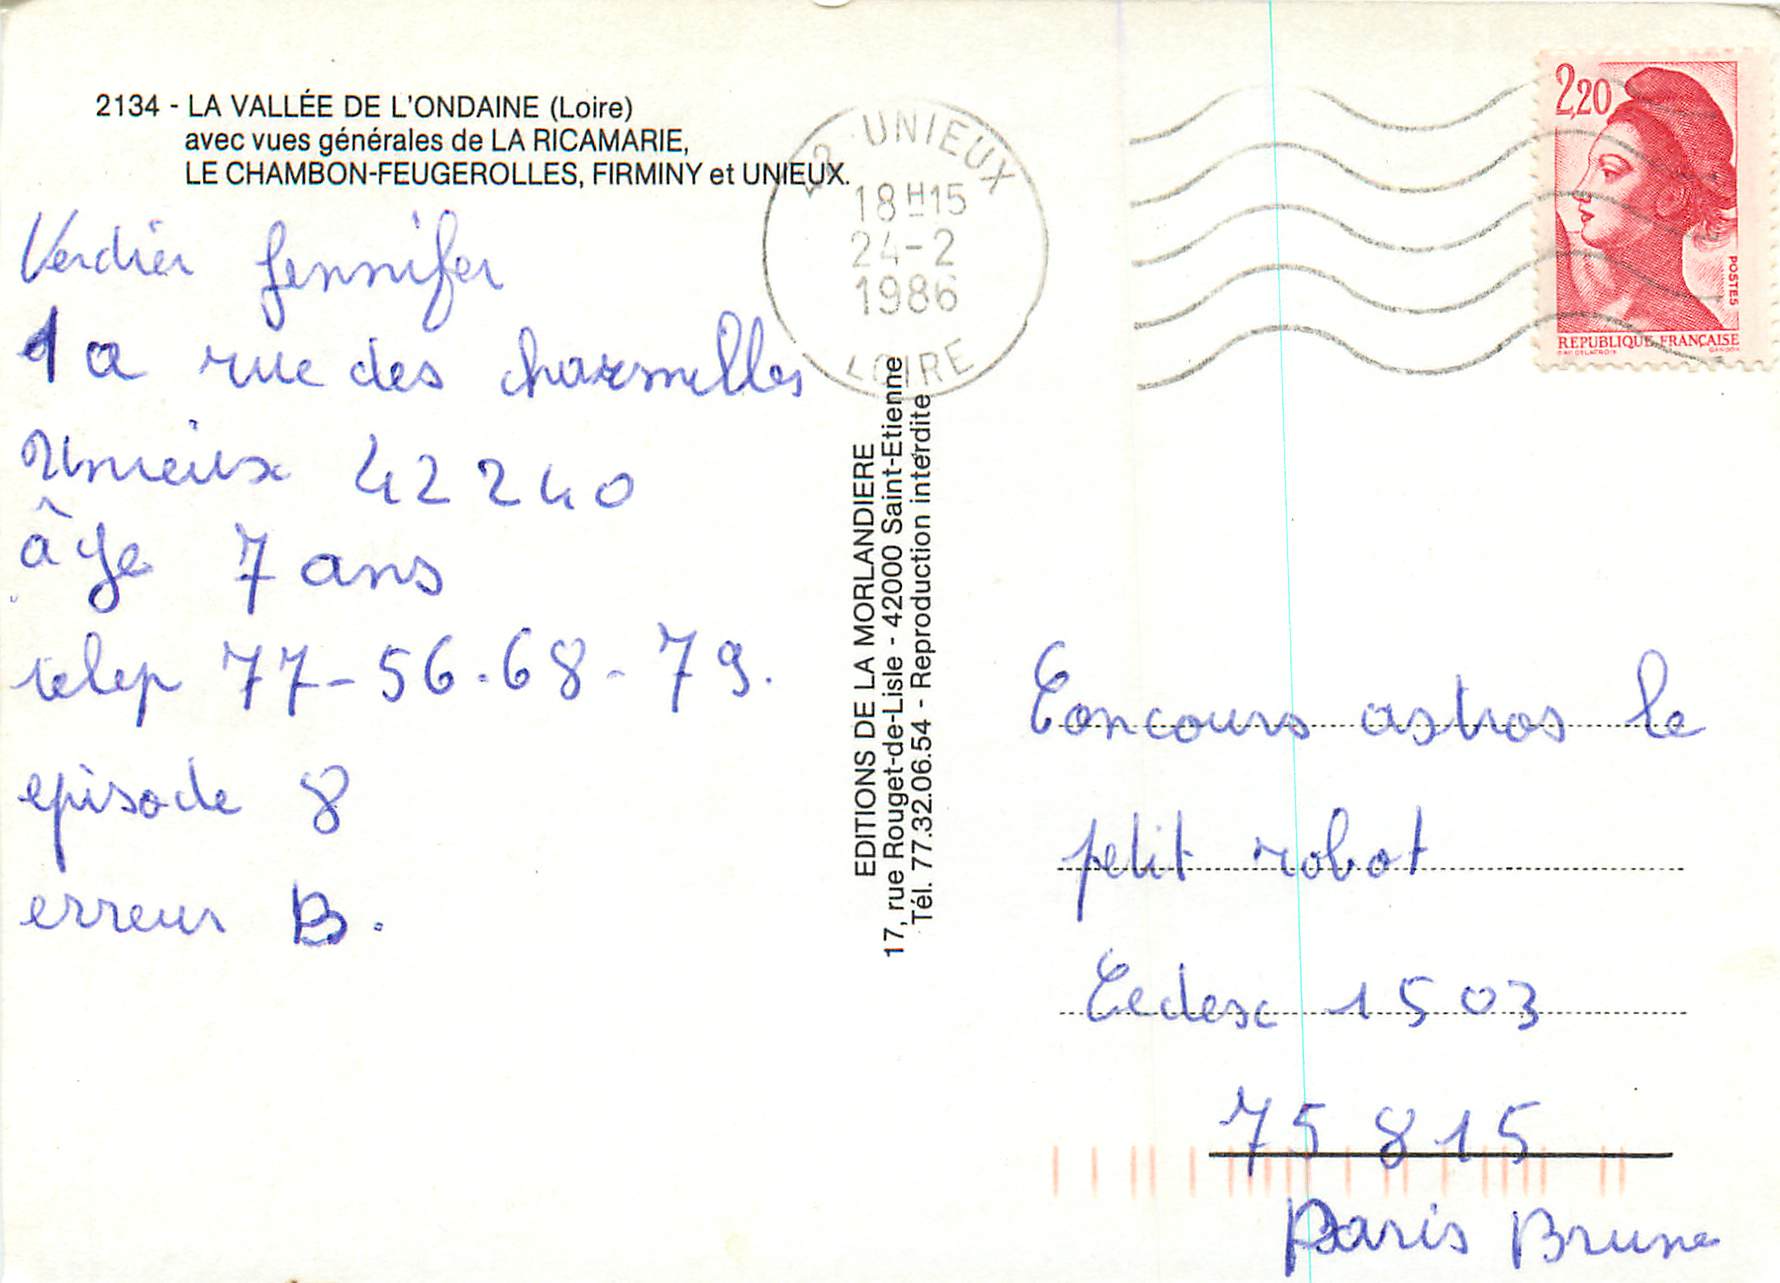 2134 - LA VALLÉE DE L'ONDAINE (Loire)
avec vues générales de LA RICAMARIE,
LE CHAMBON-FEUGEROLLES, FIRMINY et UNIEUX.
Verdier Jennifer
1 a rue des charmilles
Unieux 42240
âge 7 ans
telep 77-56.68-79.
episode 8
erreur B.
42 UNIEUX
18H15
24-2
1986
LOIRE
EDITIONS DE LA MORLANDIERE
17, rue Rouget-de-Lisle - 42000 Saint-Etienne
Tél. 77.32.06.54 - Reproduction interdite
2,20
POSTES
REPUBLIQUE FRANÇAISE
Concours astros le
petit robot
Cedex 1503
75 815
Paris Brune